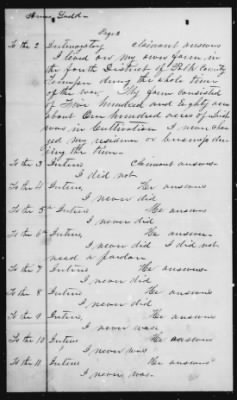 Ladd
Page 2
To the 2 Interrogatory claimant answers
I lived on my own farm in
the fourth District of Polk County
Tennessee during the whole time
of the war. My farm consisted
of Hundred and Eighty acres
about One hundred acres of which
was in Cultivation I never chan
ged my residence or business du
ring the time.
To the 3 Interro Claimant answers
I did not
To the 4 Interro, He answers
I never did
To the 5th Interro, He answers
I never did
To the 6th Interro, He answers
I never did I did not
need a pardon
To the 7 Interro He answers
I never did
To the 8 Interro He answers
I never did
To the 9 Interro, He answers
I never was
To the 10 Interro He answers
I never was
To the 11 Interro He answers
I never was